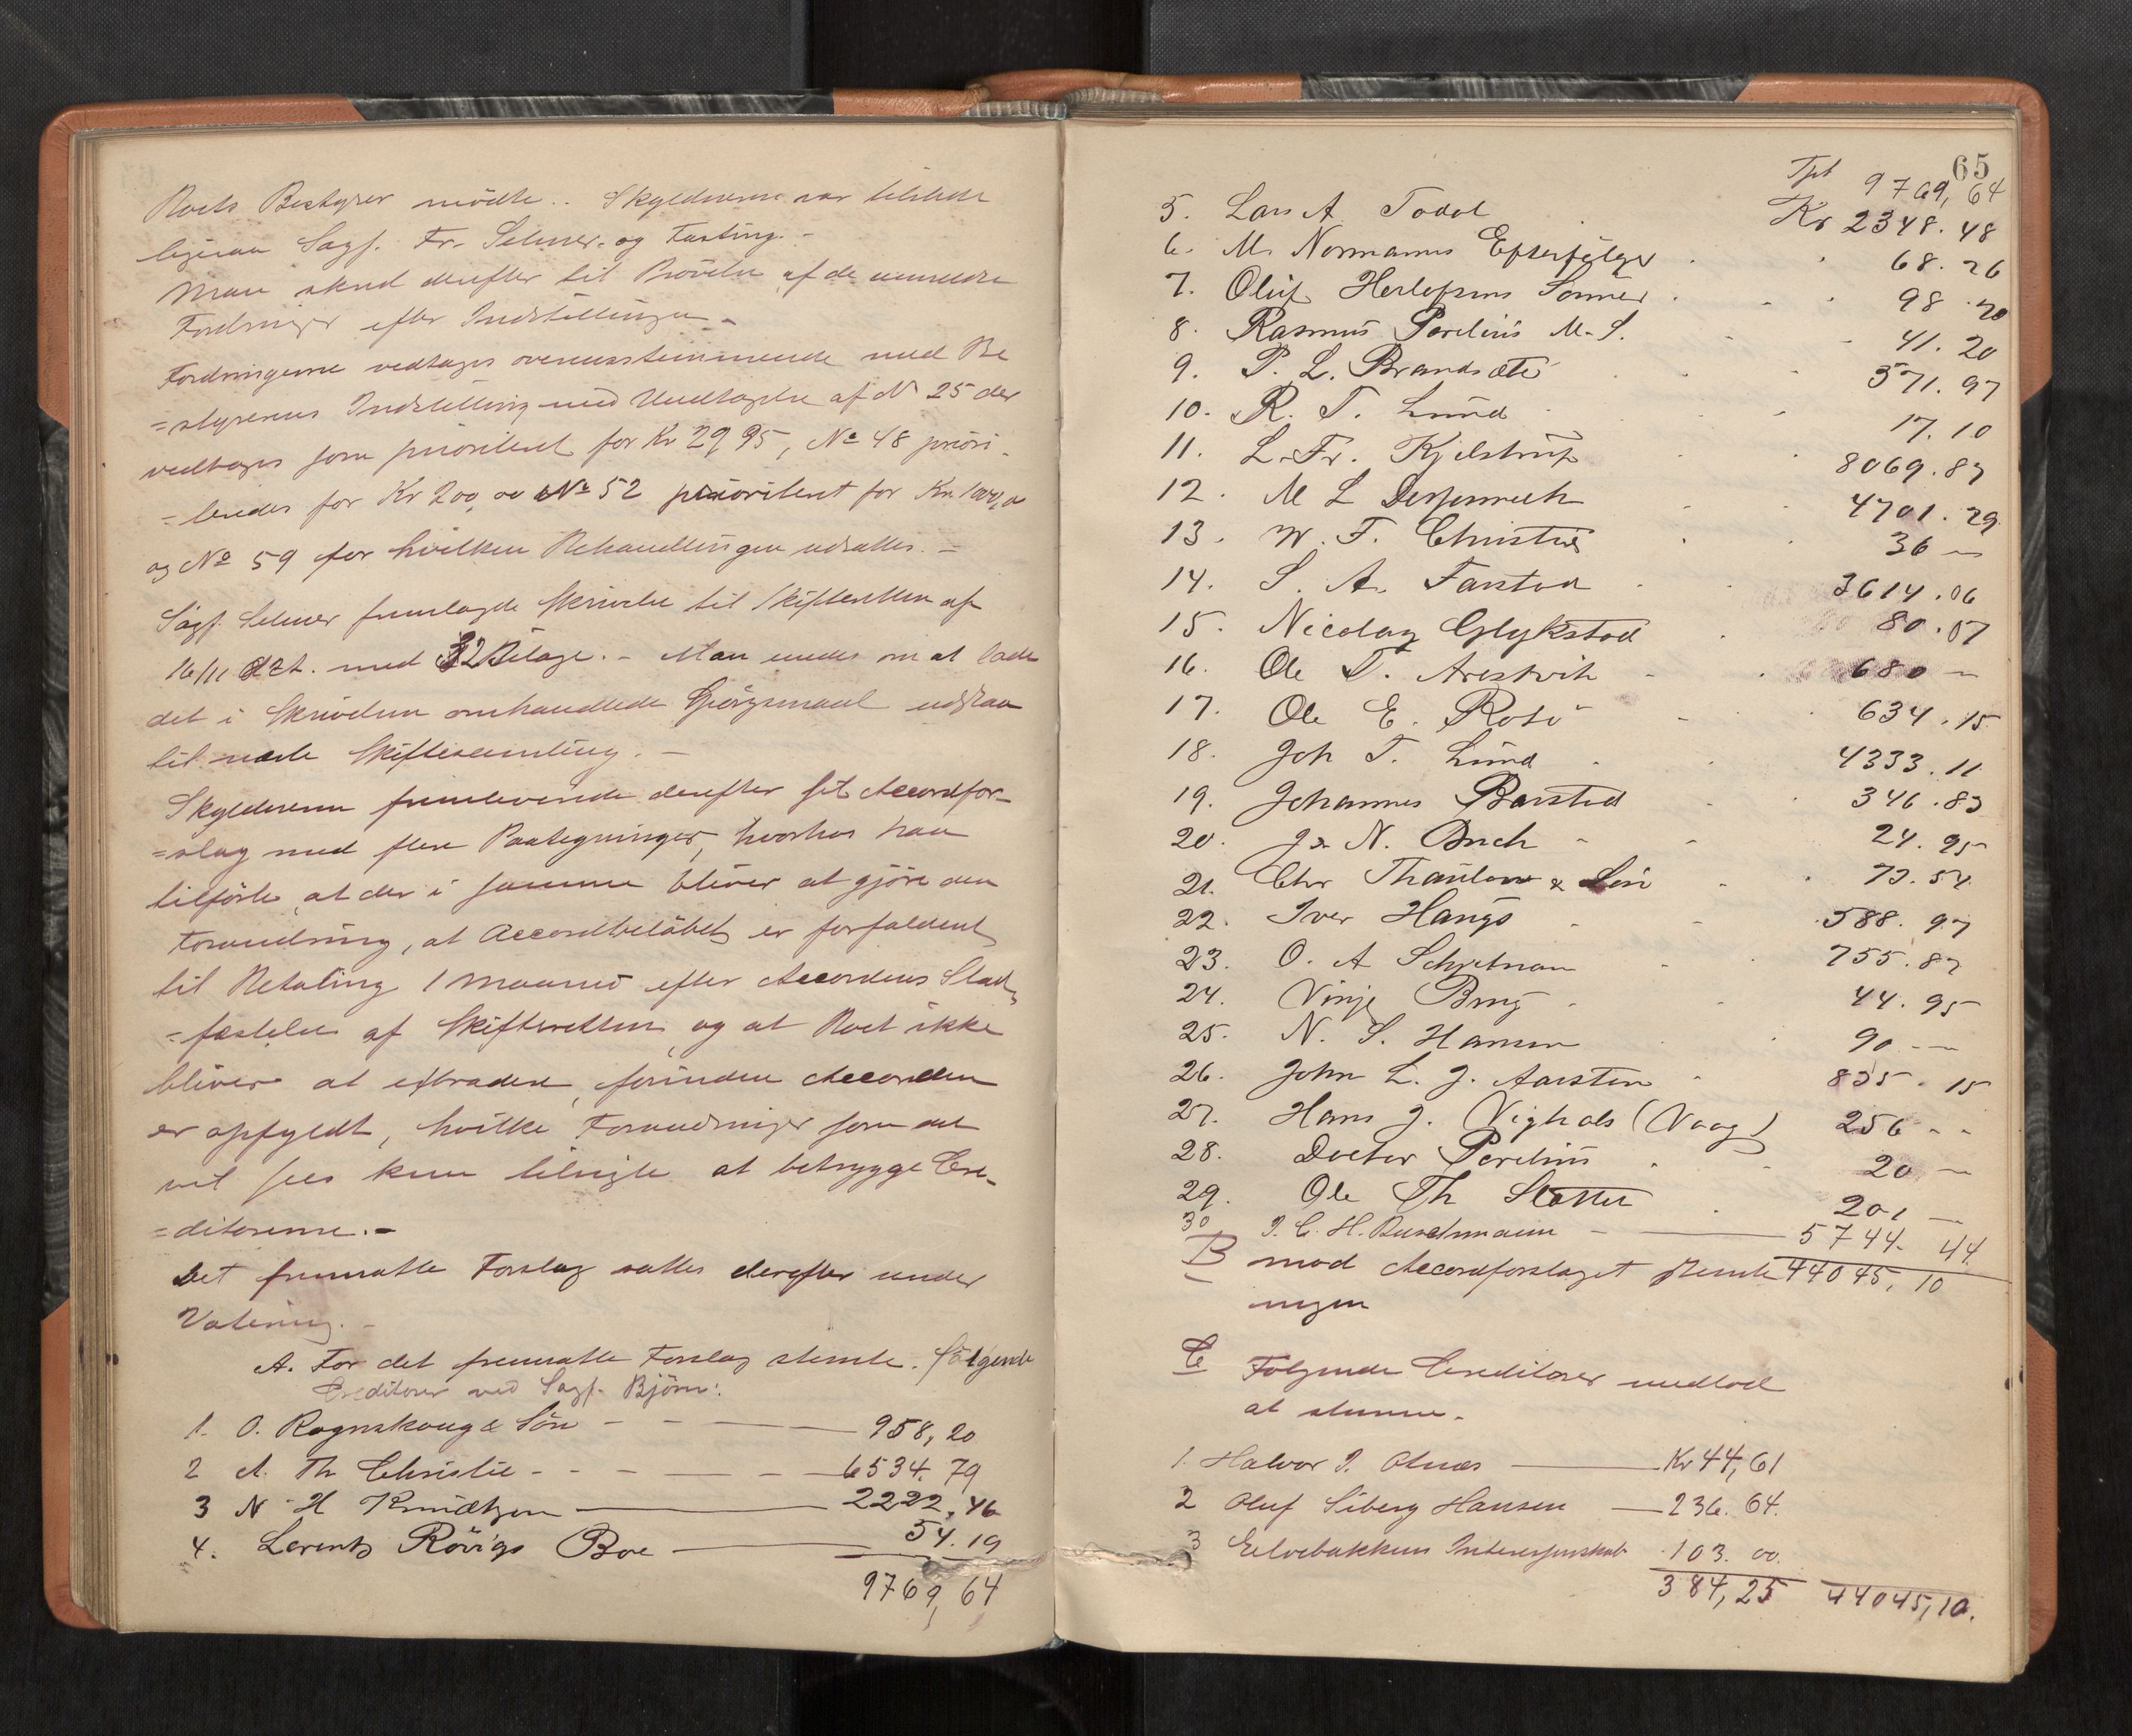 Boets Bestyrer mödte.. Skyldneren var tilstede
ligesaa Sagf. Fr. Selmer og Fasting.-
Man skred derefter til Prövelse af de anmeldte
Fordringer efter Indstillingen -
Fordringerne vedtages overensstemmende med Be
=styrerens Indstilling med Undtagelse af No 25 der
vedtages som prioritert for Kr 29,95, No 48 priori-
=teredes for Kr 200,00 No 52 prioritert for Kr. 1000,00
og No 59 for hvilken Behandlingen udsattes. -
Sagf. Selmer fremlagde Skrivelse til Skifteretten af
16/11 d.A. med 32 Bilage. - Man enedes om at lade
det i Skrivelsen omhandlede Spörgsmaal udstaa
til næste Skiftesamling. -
Skyldneren fremleverede derefter sit Accordfor-
=slag med flere Paategninger, hvorhos han
tilförte, at der i samme bliver at gjöre den
Forandring, at Accordbelöbet er forfaldent
til Betaling 1 Maaned efter Accordens Stad-
=fæstelse af Skifteretten, og at Boet ikke
bliver at extradere, forinden Accorden
er opfyldt, hvilke Forandringer som det
vil sees kun tilsigte at betrygge Cre-
=ditorerne. -
Det fremsatte Forslag sattes derefter under
Votering. -
A. For det fremsatte Forslag stemte følgende
Creditorer ved Sagf. Björn:
1. O. Rognskoug & Sön - - - 958,20
2 A. Th Christie - - - - - 6534.79
3 N. H Knudtzon - 2222.46
4. Lorentz Rövigs Boe - 54.19
9769,64
65
Tpt 9769,64
5. Lars A Todal Kr 2348.48
6. M. Normanns Efterfölger 68.26
7. Oluf Herlofsens Sönner 98.20
8. Rasmus Parelius M. S. 41.20
9. P. L. Brandsæte 371.97
10. R. T. Lund 17.10
11. L. Fr. Kjelstrup 8069.87
12. M L 4701.29
13. W. F. Christie 36 -
14. S. A. Farstad 3614.06
15. Nicolay Glykstad 80.07
16. Ole T. Arestvik 680 -
17. Ole E. Rosö 634.15
18. Joh T. Lund 4333.11
19. Johannes Barstad 346.83
20. Js N. Buch 24.95
21. Chr Thaulow & Sön 73.54
22. Iver Haugs 588.97
23. O. A Schjetnan 755.87
24. Vinje Brug 44.95
25. N. S. Hansen 90 --
26. John L. J. Aarsten 835.15
27. Hans J. Vighals (Vaag) 256 - -
28. Doctor Parelius 20 -
29. Ole Th Slatter 201 -
30 J. C. H. Buschmann - 5744.44
B mod Accordforslaget stemte 44045,10
ingen
C Følgende Creditorer undlod
at stemme.
1. Halvor J. Otnæs - Kr 44,61
2 Oluf Siberg Hansen - 236.64.
3 Eelvebakkens Interessenskab 103.00.
384,25 44045,10.